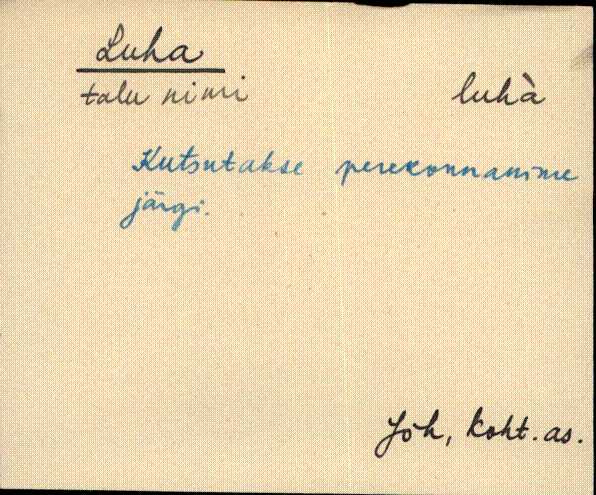 Luha
talu nimi luhà
Kutsutakse perekonnanime
järgi.
Jõh, Koht. as.